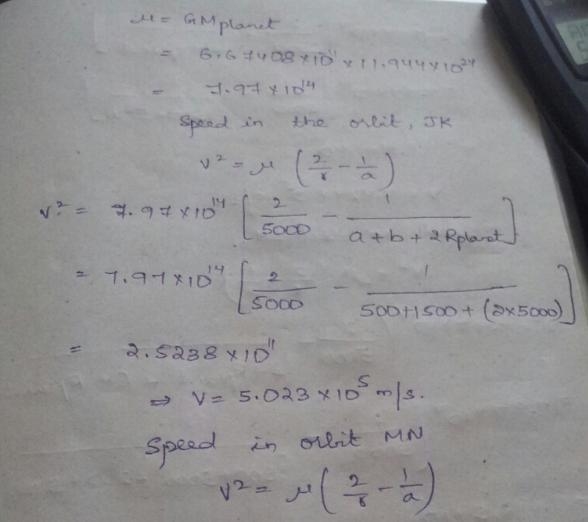 μ = GMplanet
= 6.67408 × 10¹¹ × 11.944 × 10²⁴
= 7.97 × 10¹⁴
Speed in the orbit, JK
v² = μ (2/r - 1/a)
v² = 7.97 × 10¹⁴ [2/5000 - 1/(a + b + 2Rplanet)]
= 7.97 × 10¹⁴ [2/5000 - 1/(500 + 1500 + (2×5000))]
= 2.5238 × 10¹¹
⇒ V = 5.023 × 10⁵ m/s.
Speed in orbit MN
v² = μ (2/r - 1/a)